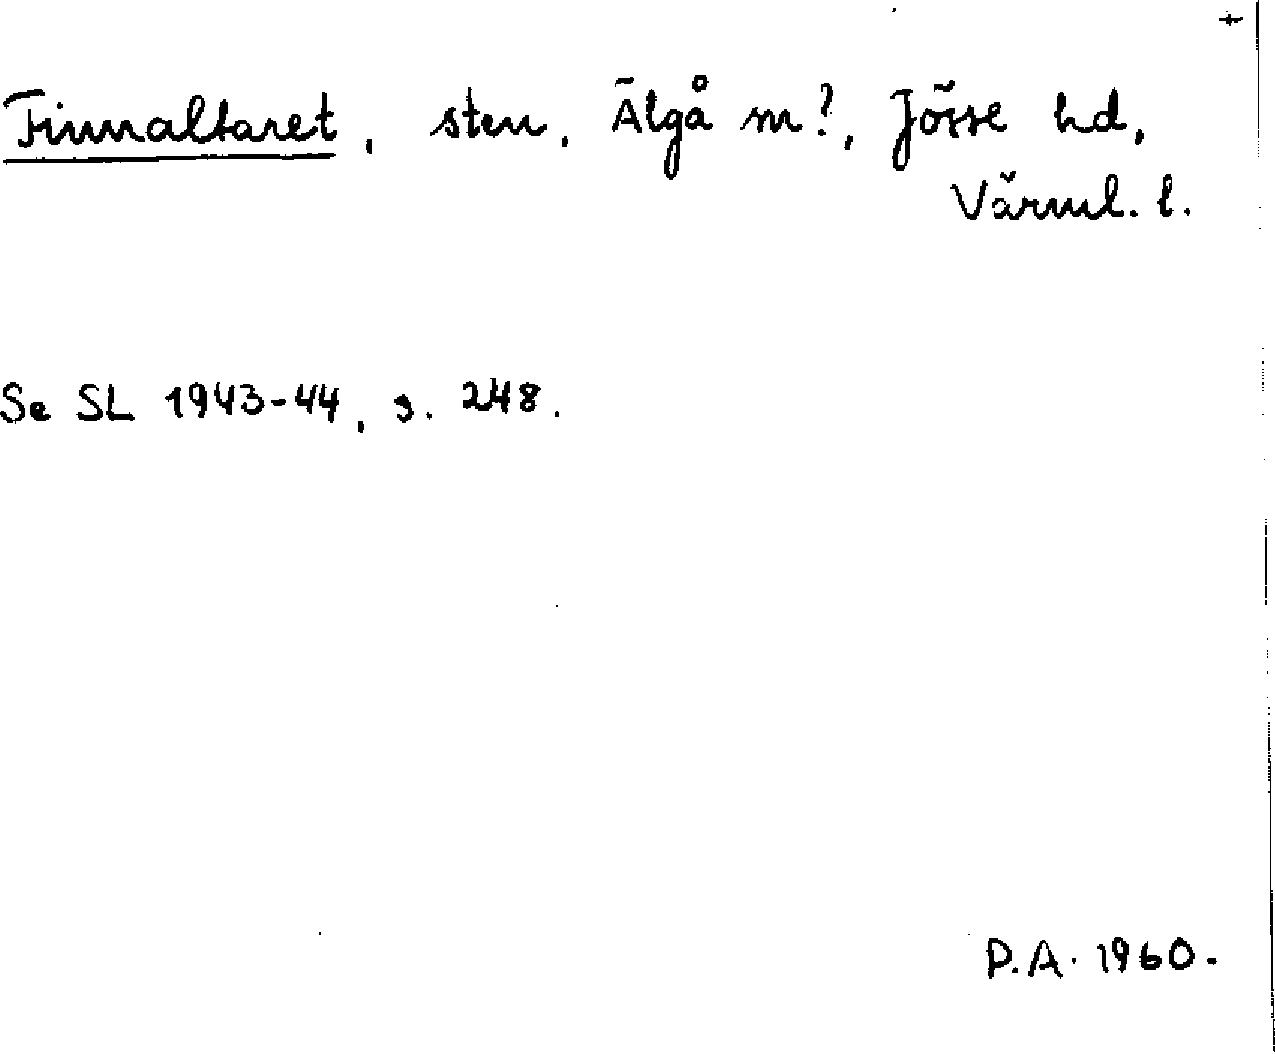 +
Finnaltaret, sten, Älgå sn?, Jösse hd,
Värml. l.
Se SL 1943-44, s. 248.
P.A. 1960.